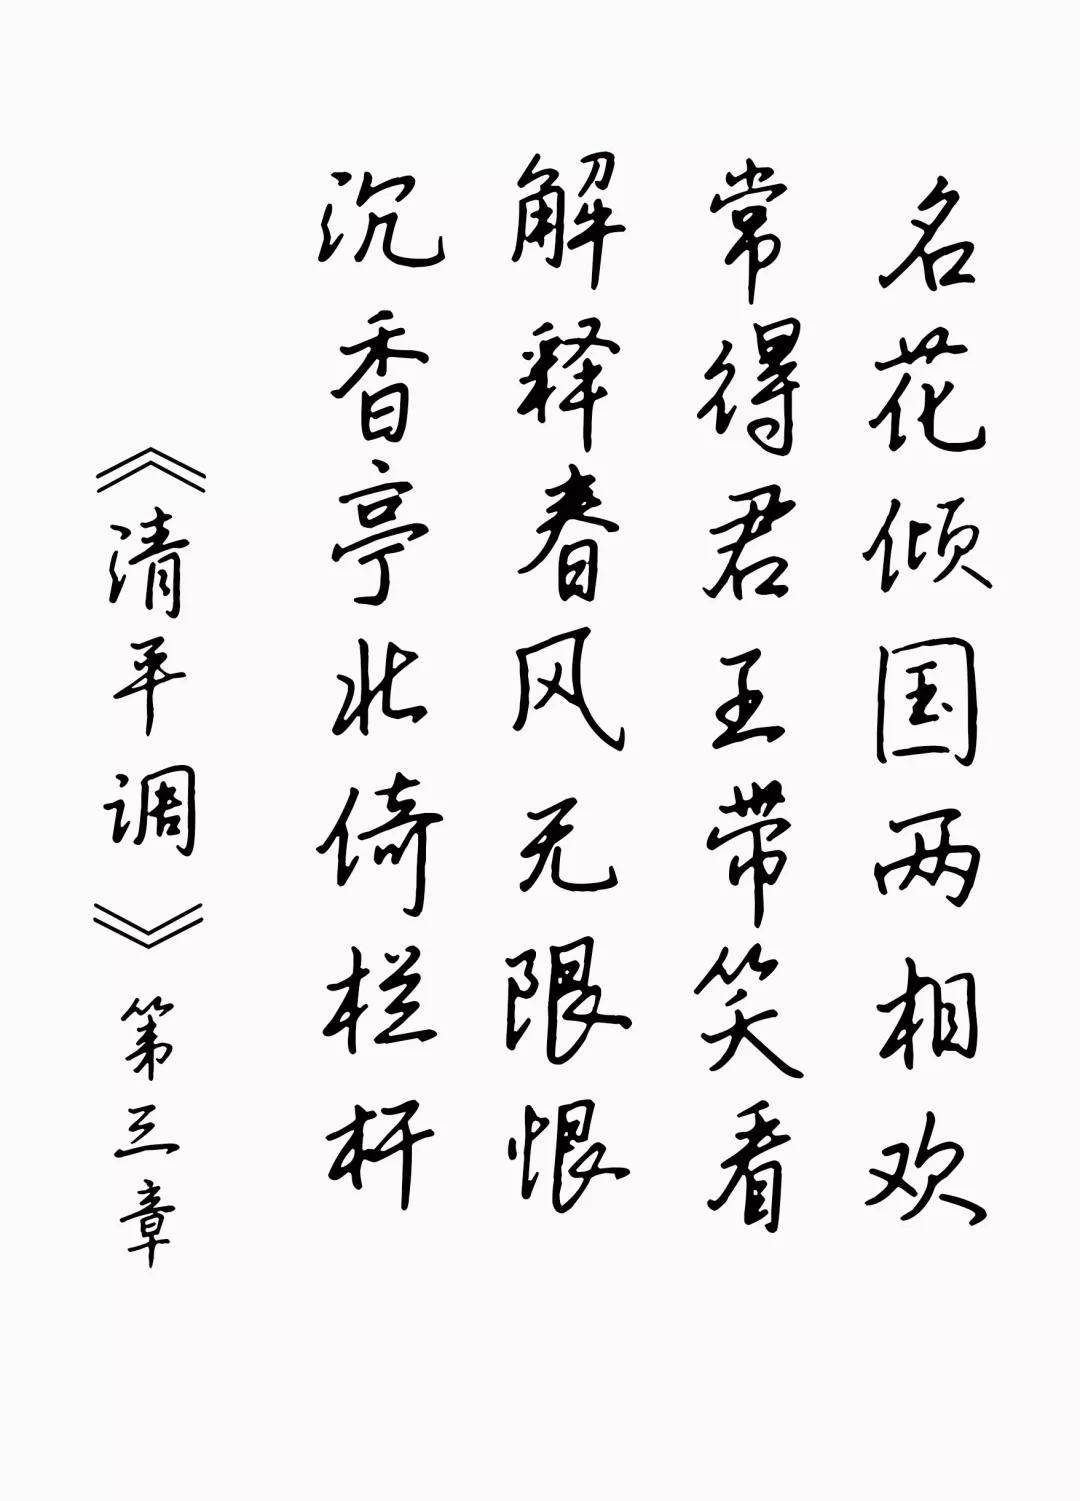 名花倾国两相欢
常得君王带笑看
解释春风无限恨
沉香亭北倚栏杆
《清平调》第三章